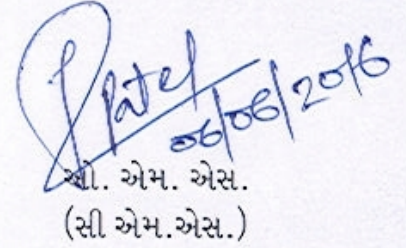 Patel
06/06/2016
ઓ. એમ. એસ.
(સી એમ.એસ.)